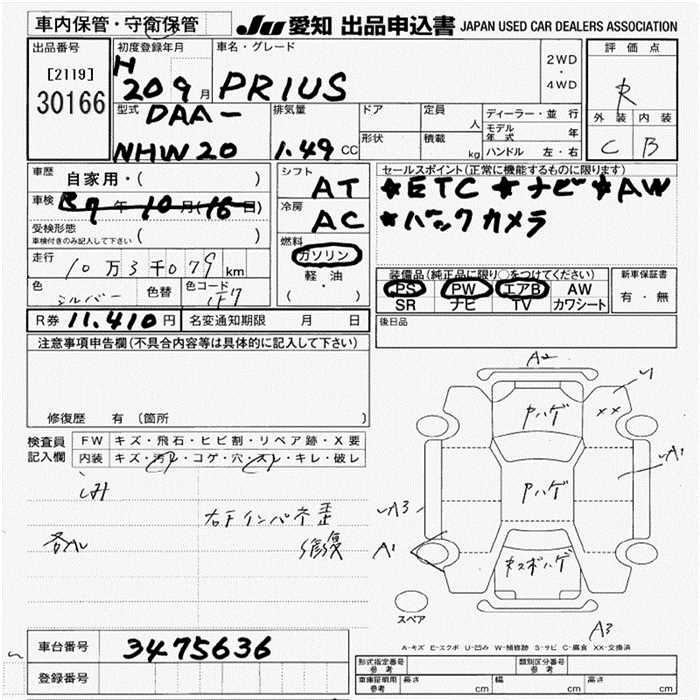 車内保管・守衛保管
JU 愛知 出品申込書 JAPAN USED CAR DEALERS ASSOCIATION
出品番号
[2119]
30166
初度登録年月
H 20 9月
車名・グレード
PRIUS
2WD
・
4WD
評価点
R
外装 内装
C B
型式
DAA-
NHW20
排気量
1.49 CC
ドア
形状
定員
人
積載
kg
ディーラー・並行
モデル年式 年
ハンドル 左・右
車歴
自家用・( )
車検
年10月(16日)
受検形態
車検付きのみ記入して下さい ( )
走行
10万3千079 km
色
シルバー
色替
色コード
1F7
シフト
AT
冷房
AC
燃料
ガソリン
軽・油
( ・ )
セールスポイント(正常に機能するものに限ります)
★ETC ★ナビ ★AW
★バックカメラ
装備品(純正品に限り○をつけてください)
PS PW エアB AW
SR ナビ TV カワシート
新車保証書
有・無
R券 11,410円
名変通知期限 月 日
後日品
注意事項申告欄(不具合内容等は具体的に記入して下さい)
修復歴 有 〔箇所 〕
検査員記入欄
FW キズ・飛石・ヒビ割・リペア跡・X要
内装 キズ・汚れ・コゲ・穴・スレ・キレ・破レ
右下インパネ歪
修復
A2
ハゲ
ハゲ
ハゲ
XX
A1
A3
A1
A3
スペア
A-キズ E-エクボ U-凹み W-補修跡 S-サビ C-腐食 XX-交換済
車台番号
3475636
登録番号
形式指定番号
参考
類別区分番号
参考
車庫証明用
参考
長さ cm
幅 cm
高さ cm